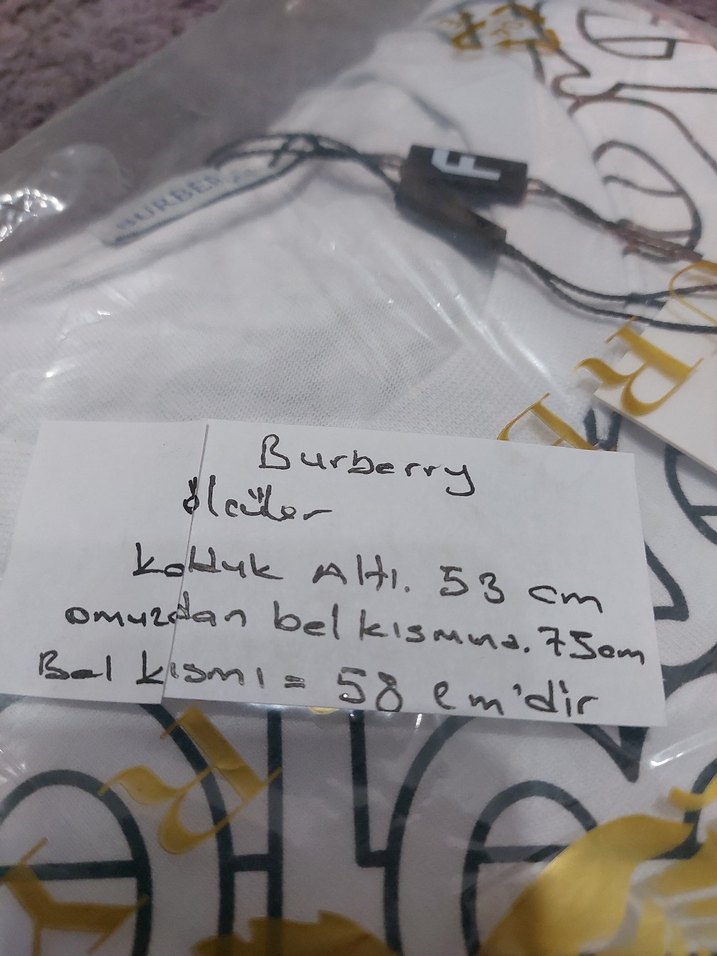 BURBER
F
R
Burberry
ölçüler
koltuk Altı. 53 cm
omuzdan bel kısmına. 75cm
Bel kısmı = 58 cm'dir